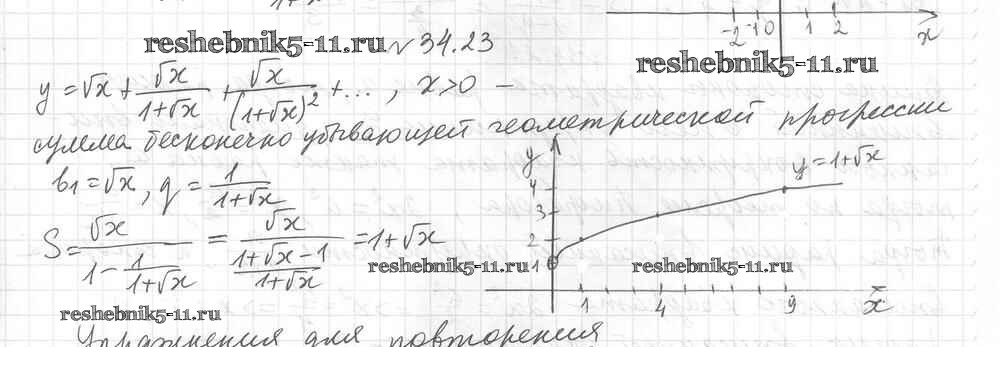 reshebnik5-11.ru № 34.23
-2 -1 0 1 2 x
reshebnik5-11.ru
y = √x + √x/(1+√x) + √x/(1+√x)² + ... , x>0 –
сумма бесконечно убывающей геометрической прогрессии
b₁ = √x, q = 1/(1+√x)
S = √x/(1 - 1/(1+√x)) = √x/((1+√x-1)/(1+√x)) = 1+√x
y
4
3
2
1
y = 1+√x
1 4 9 x
reshebnik5-11.ru
reshebnik5-11.ru
reshebnik5-11.ru
Упражнения для повторения